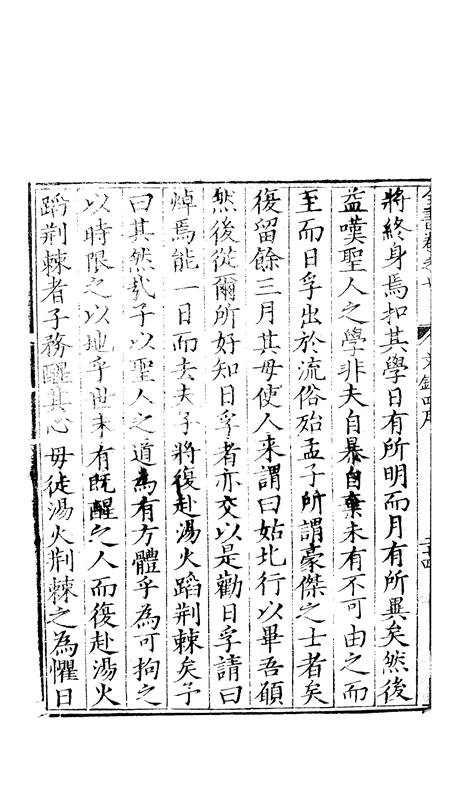 將終身焉扣其學日有所明而月有所異矣然後
益嘆聖人之學非夫自暴自棄未有不可由之而
至而日孚出於流俗殆孟子所謂豪傑之士者矣
復留餘三月其母使人來謂曰姑北行以畢吾願
然後從爾所好知日孚者亦交以是勸日孚請曰
焯焉能一日而去夫子將復赴湯火蹈荆棘矣予
曰其然哉子以聖人之道為有方體乎為可拘之
以時限之以地乎世未有既醒之人而復赴湯火
蹈荆棘者子務醒其心毋徒湯火荆棘之為懼日